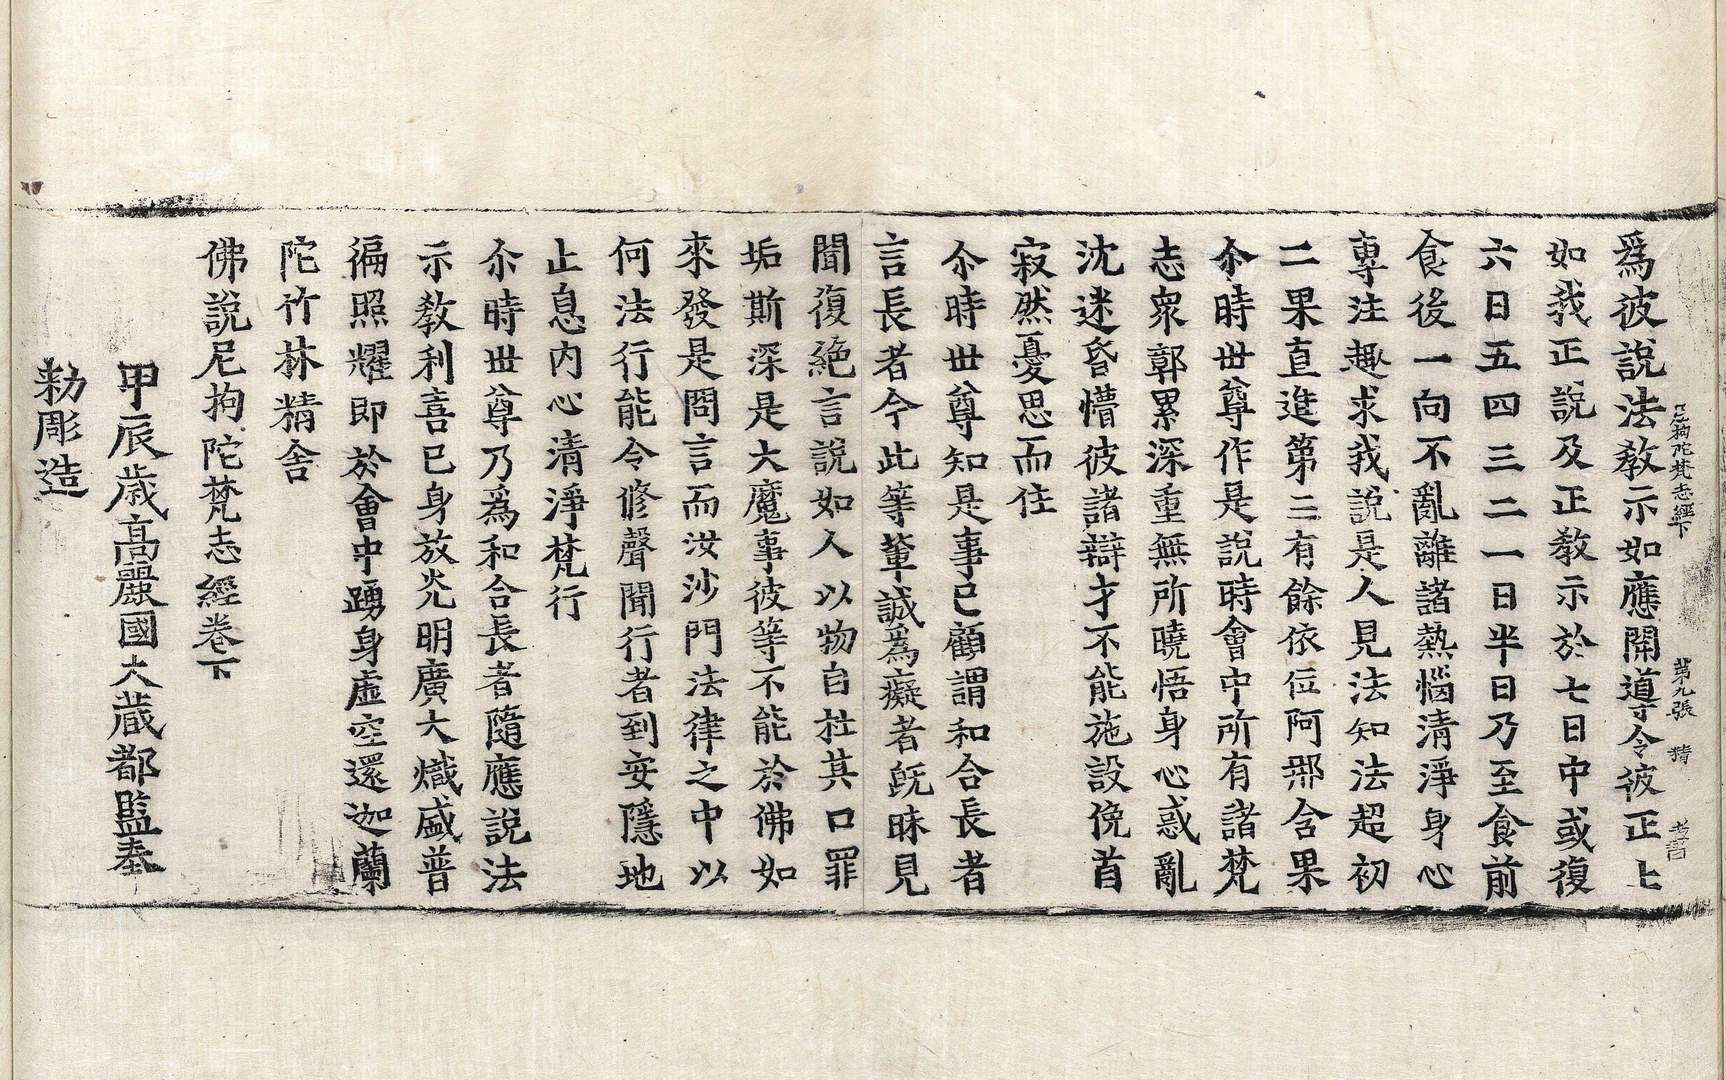 尼拘陀梵志經下 第九張 精
爲彼說法教示如應開導令彼正上
如我正說及正教示於七日中或復
六日五四三二一日半日乃至食前
食後一向不亂離諸熱惱清淨身心
專注趣求我說是人見法知法超初
二果直進第三有餘依位阿那含果
尒時世尊作是說時會中所有諸梵
志衆郭累深重無所曉悟身心惑亂
沈迷昏懵彼諸辯才不能施設俛首
寂然憂思而住
尒時世尊知是事已顧謂和合長者
言長者今此等輩誠爲癡者旣昧見
聞復絶言說如人以物自杜其口罪
垢斯深是大魔事彼等不能於佛如
來發是問言而汝沙門法律之中以
何法行能令修聲聞行者到安隱地
止息内心清淨梵行
尒時世尊乃爲和合長者隨應說法
示教利喜已身放光明廣大熾盛普
徧照耀即於會中踴身虛空還迦蘭
陀竹林精舍
佛說尼拘陀梵志經卷下
甲辰歲高麗國大藏都監奉
勅彫造